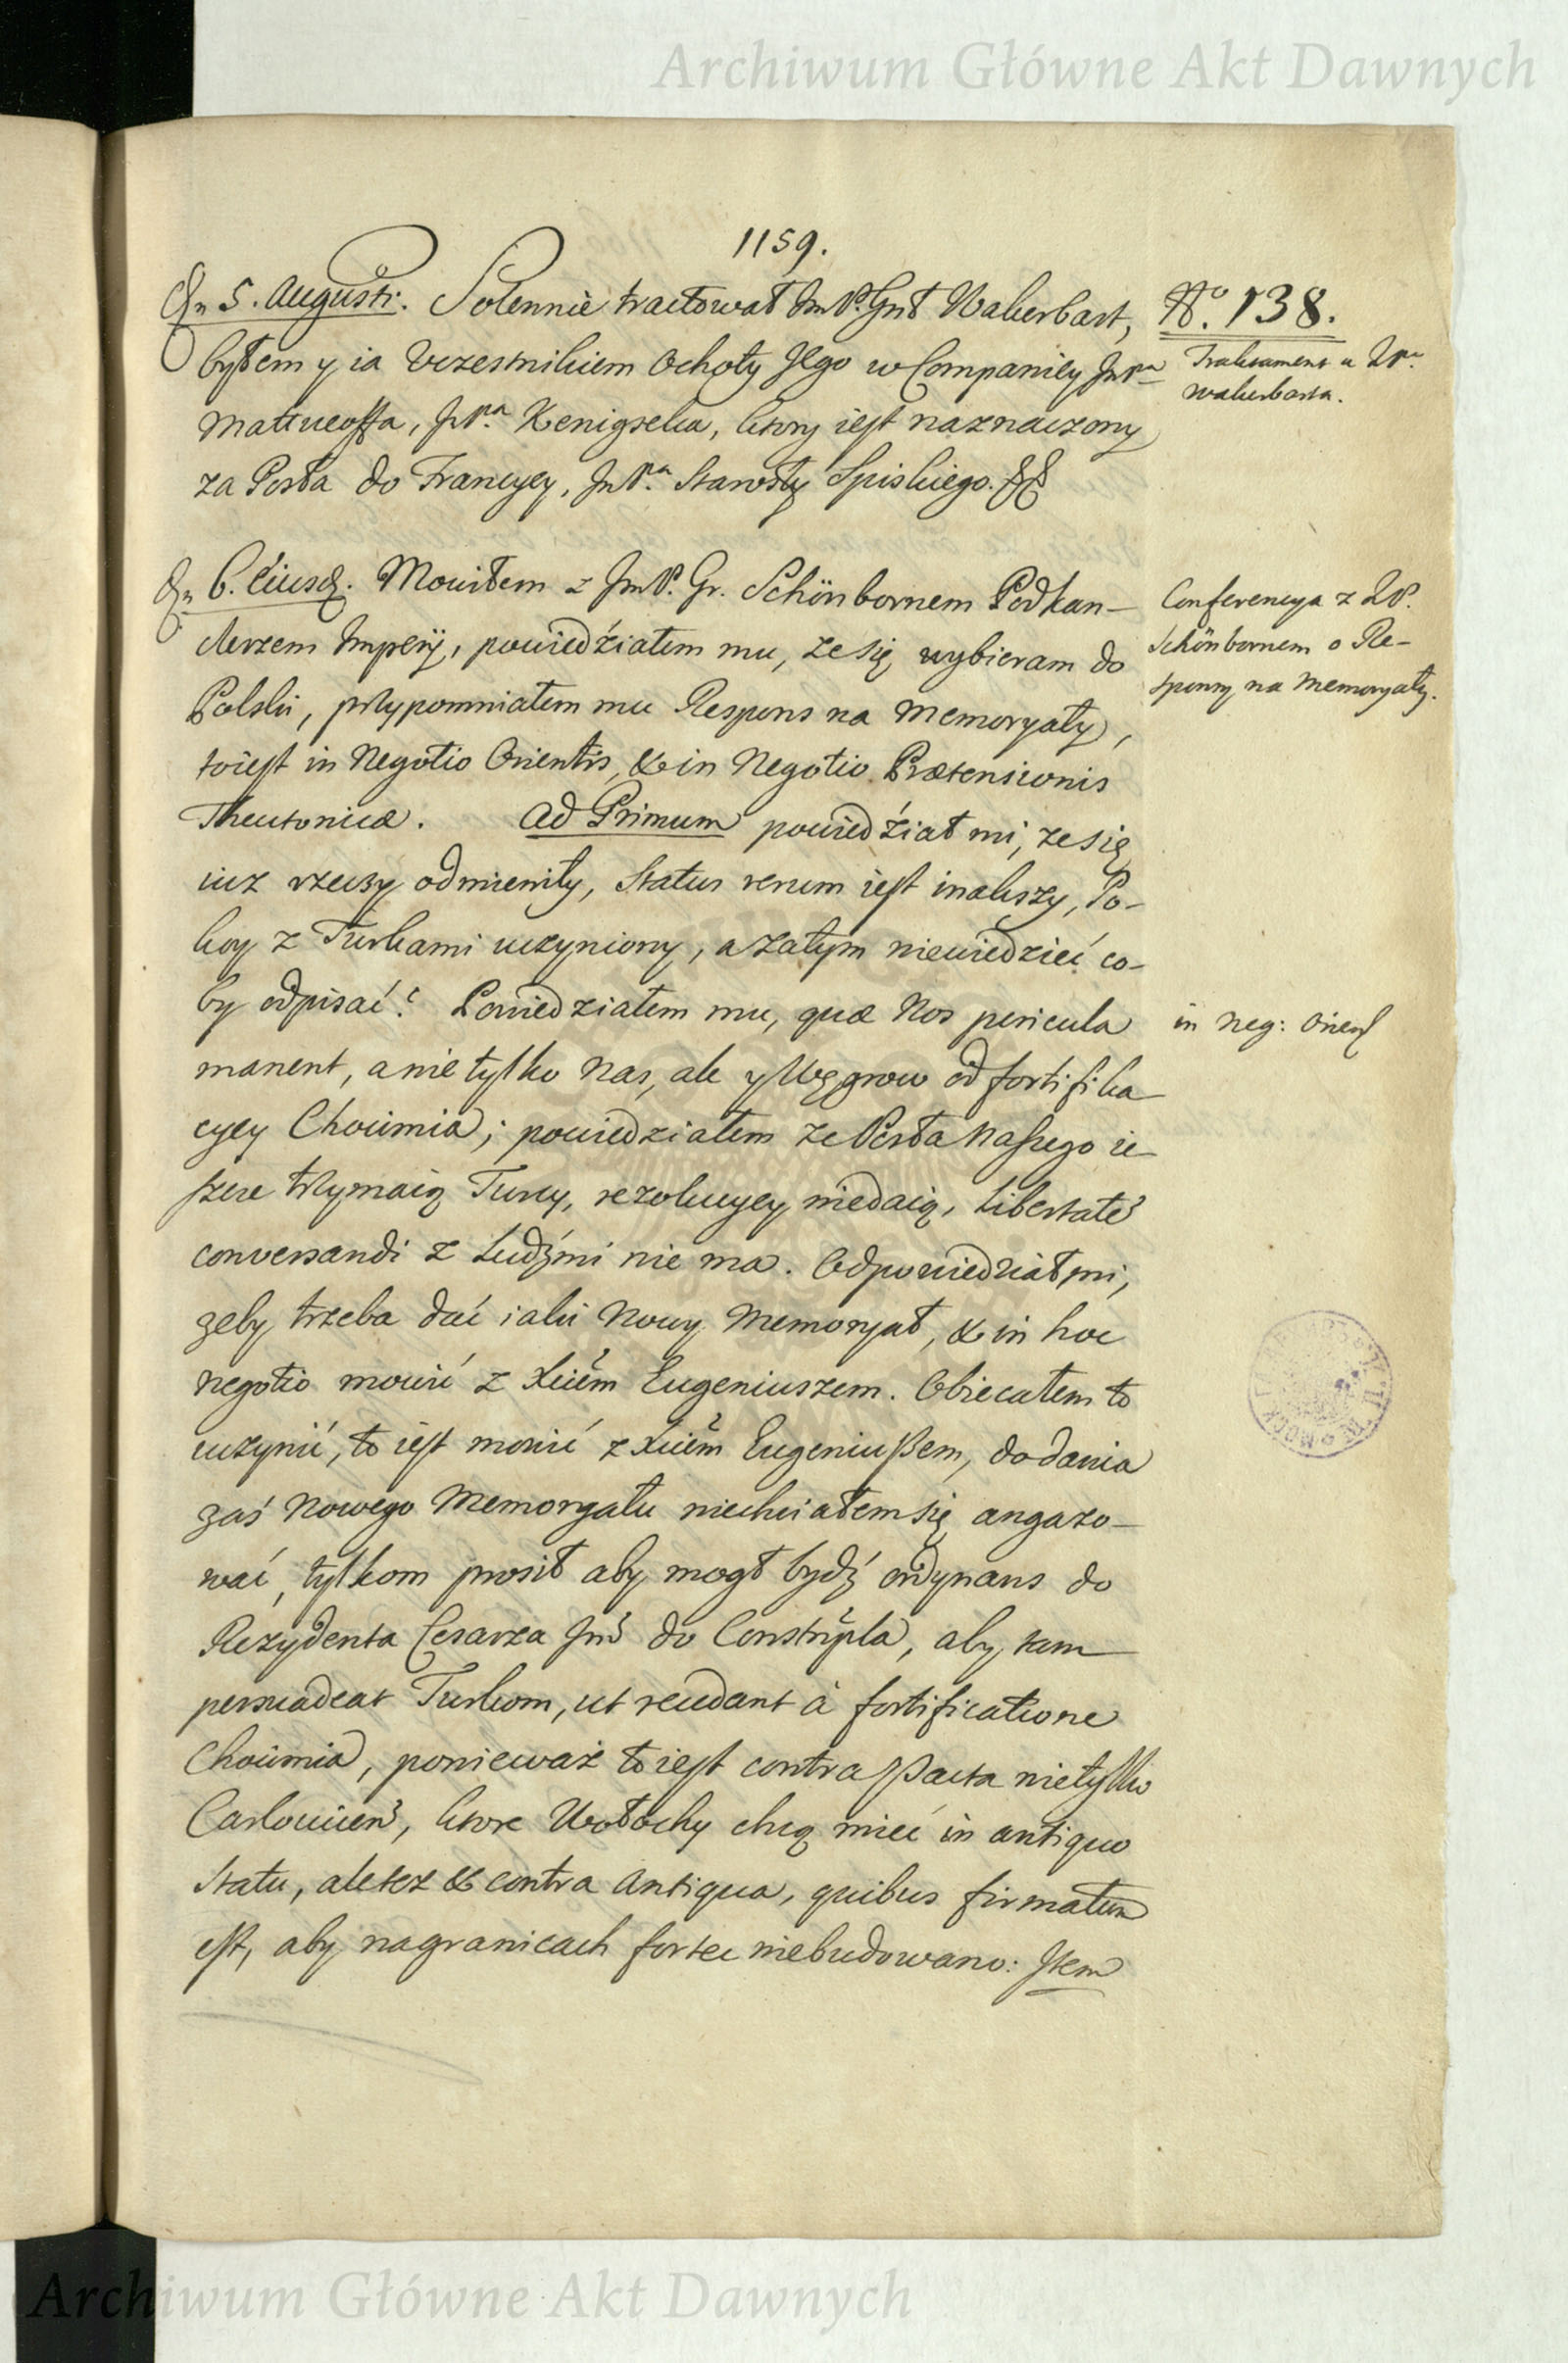 Archiwum Główne Akt Dawnych
1159.
Dn 5. Augusti. Solennie tractował Jm P. Gnł Wakerbart,
N.º 138.
byłem y ia Uczestnikiem Ochoty Jego w Companiey JmPa
Traktament u JPa
Wakerbarta.
Matueoffa, JmPa Kenigseka, ktory iest naznaczony
za Posła do Francyey, JmPa Starosty Spiskiego. &&
Dn 6. Eiusd. Mowiłem z JmP. Gr. Schönbornem Podkan-
Conferencya z JP.
clerzem Imperij, powiedźiałem mu, ze się wybieram do
Schönbornem o Re-
Polski, przypomniałem mu Respons na Memoryały,
spons na Memoryały.
toiest in Negotio Orientis, & in Negotio Prætensionis
Theutonicæ. Ad Primum powiedźiał mi, ze się
iuz rzeczy odmieniły, Status rerum iest inakszy, Po-
koy z Turkami uczyniony, a zatym niewiedzieć co-
by odpisać? Powiedziałem mu, quæ Nos pericula
in neg: Orient
manent, a nie tylko Nas, ale y Węgrow od fortifika
cyey Chocimia; powiedziałem ze Posła Naszego ie-
szcze trzymaią Turcy, rezolucyey niedaią, Libertatē
conversandi z Ludźmi nie ma. Odpowiedział mi,
zeby trzeba dać iaki Nowy Memoryał, & in hoc
negotio mowić z Xciēm Eugeniuszem. Obiecałem to
uczynić, to iest mowić z Xciēm Eugeniuszem, do dania
zaś Nowego Memoryału niechciałem się angazo-
wać, tylkom prosił aby mogł bydź ordynans do
Rezydenta Cesarza Jmć do Constnpla, aby tam
persuadeat Turkom, ut recedant à fortificatione
Chocimia, ponieważ to iest contra Pacta nietylko
Carlovicen, ktore Wołochy chcą mieć in antiquo
Statu, ale tez & contra Antiqua, quibus firmatum
est, aby na granicach fortec niebudowano: Item
Archiwum Główne Akt Dawnych